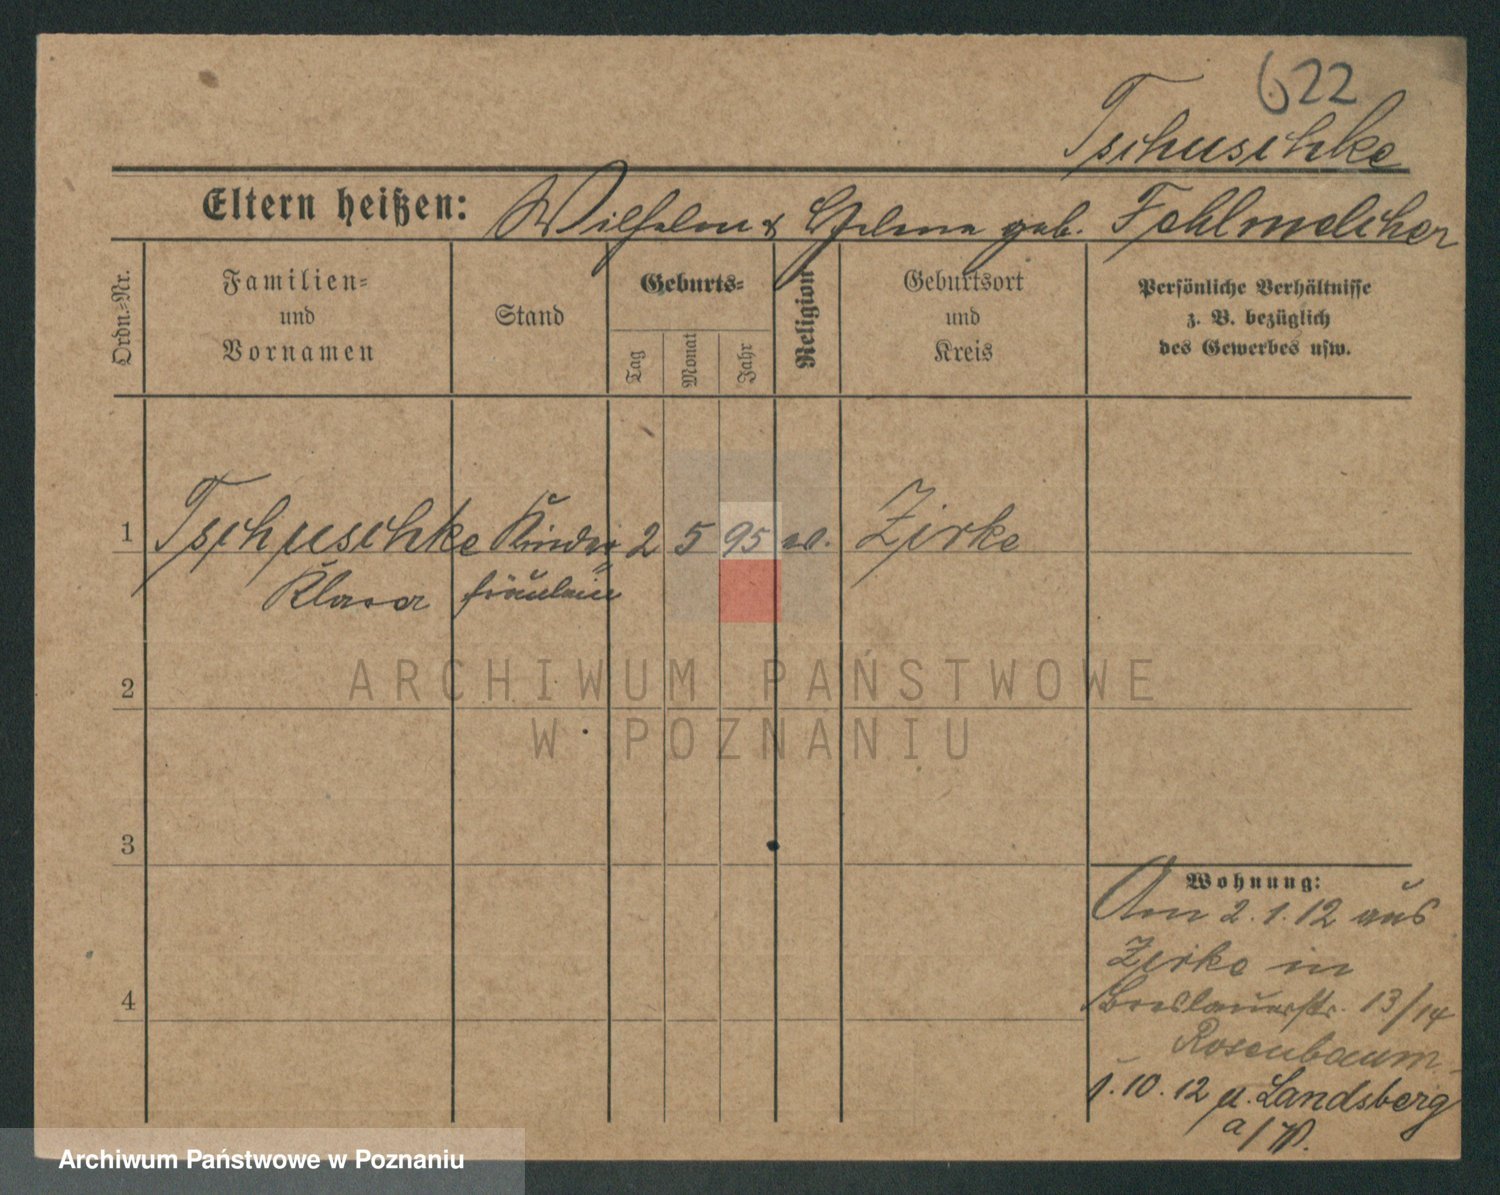 622
Tschuschke
Eltern heißen: Wilhelm & Helma geb. Fehlmelcher
Ordn.-Nr.
Familien-
und
Vornamen
Stand
Geburts-
Tag
Monat
Jahr
Religion
Geburtsort
und
Kreis
Persönliche Verhältnisse
z. B. bezüglich
des Gewerbes usw.
1 Tschuschke Kinder 2 5 95 Zirke
Klara fräulein
2
3
4
Wohnung:
Am 2.1.12 aus
Zirke in
Breslauerstr. 13/14
Rosenbaum
1.10.12 n. Landsberg
a/W.
ARCHIWUM PAŃSTWOWE
W POZNANIU
Archiwum Państwowe w Poznaniu